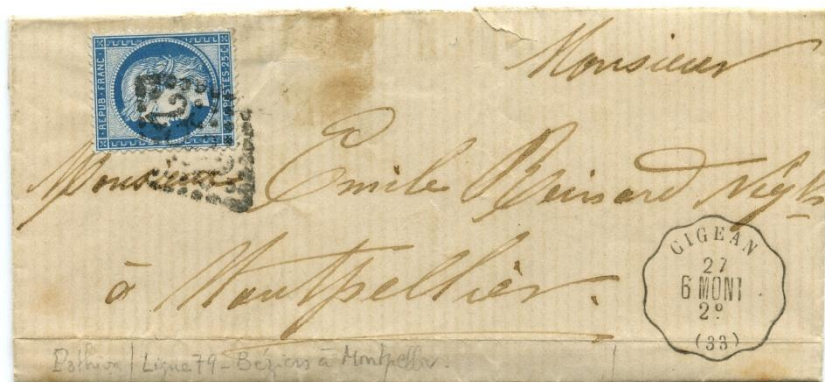 REPUB · FRANC ·
POSTES 25
Monsieur
Monsieur Emile Reinard Négt
à Montpellier.
GIGEAN
27
6 MONT
2º
(33)
Ligne 79 - Béziers à Montpellier.